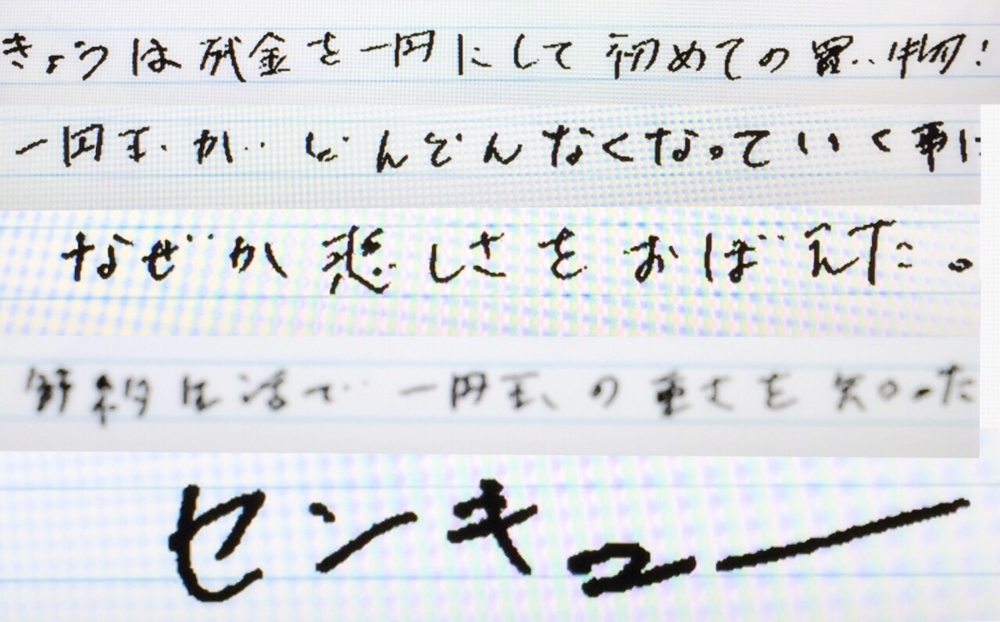 きょうは残金を一円にして初めての買い物!
一円玉がどんどんなくなっていく事に
なぜか悲しさをおぼえた。
節約生活で一円玉の重さを知った
センキュー